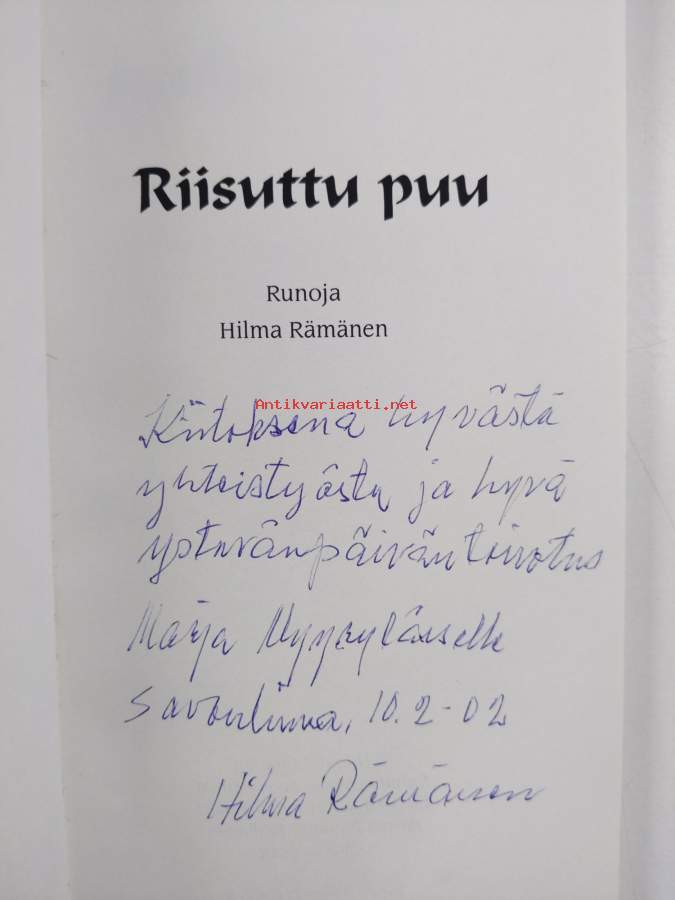 Riisuttu puu
Runoja
Hilma Rämänen
Antikvariaatti.net
Kiitoksena hyvästä
yhteistyöstä ja hyvä
ystävänpäivän toivotus
Marja
Savonlinna, 10.2-02
Hilma Rämänen